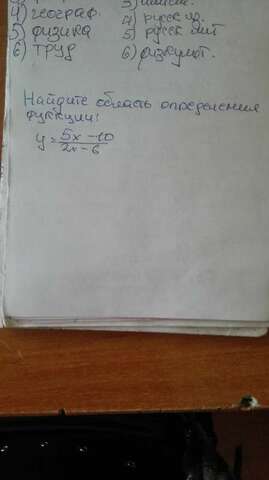 4) географ.
5) физика
6) труд
4) русск яз.
5) русск лит
6) физкульт.
Найдите область определения
функции:
y = 5x - 10 / 2x - 6